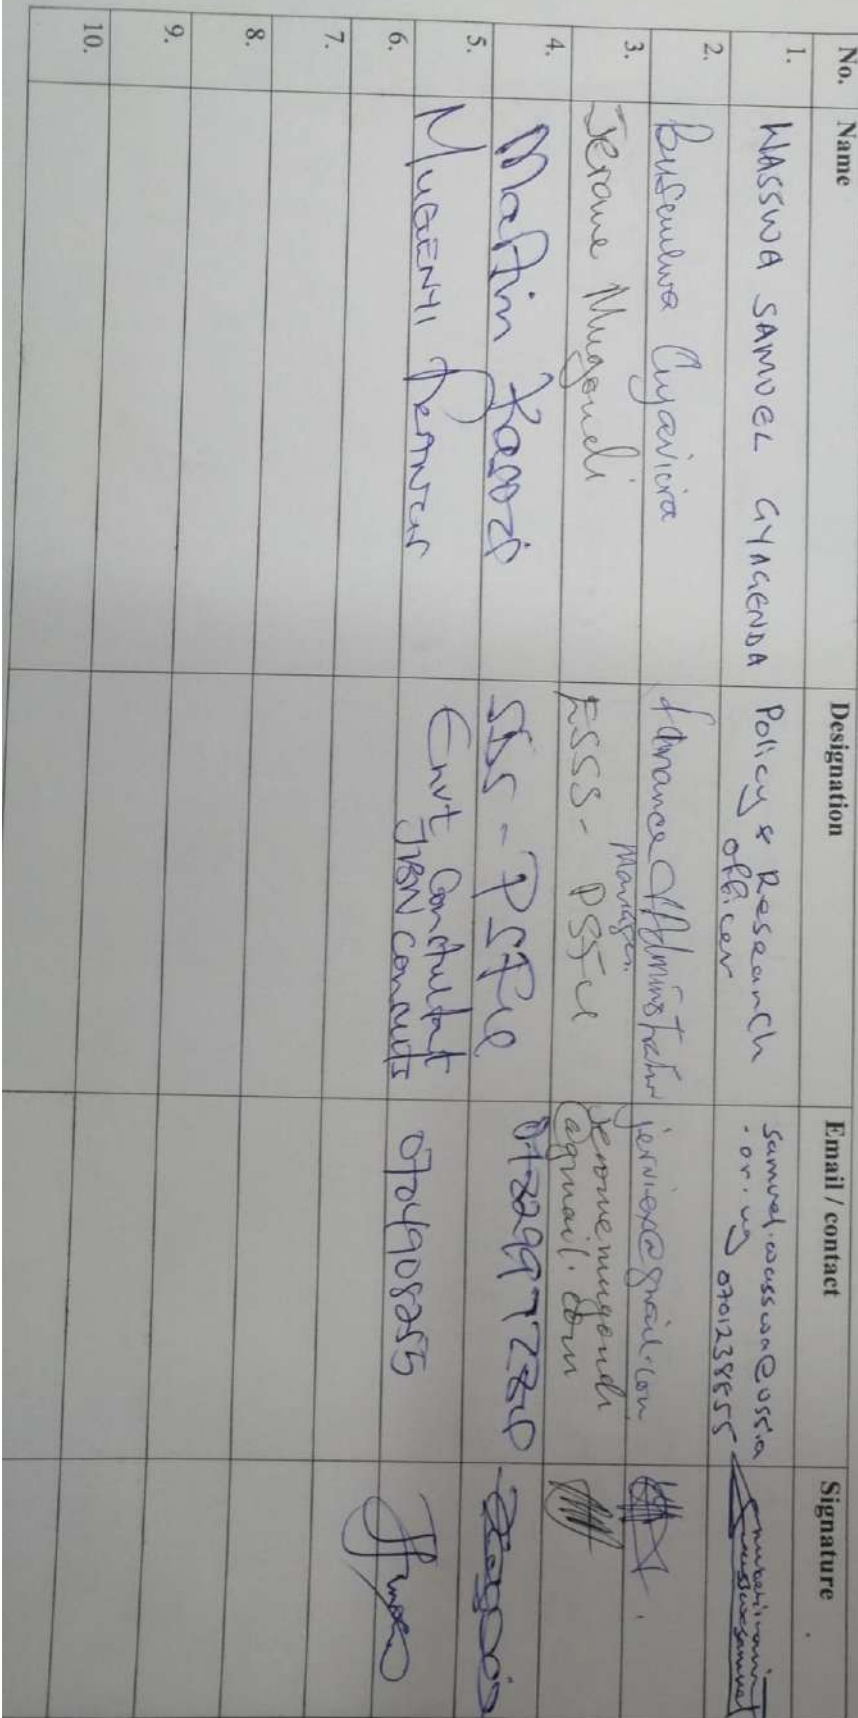 No. Name Designation Email / contact Signature
1. WASSWA SAMUEL GYAGENDA Policy & Research
officer samuel.wasswa@ussia
.or.ug 0701238855
2. Finance & Administration
Manager jerviex@gmail.com
3. Jerome Mugondi ESSS - PSFU jeromemugondi
@gmail.com
4. Martin Kasozi SDS - PSFU
5. MUGENYI FRANCIS Envt Consultant
JBN Consults 0704908255
6.
7.
8.
9.
10.